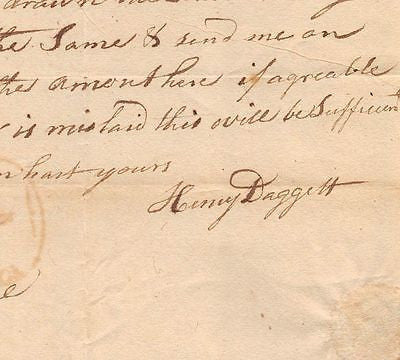 drawn
the Same & send me an
the amont here if agreable
is mislaid this will be Sufficent
hast yours
Henry Daggett